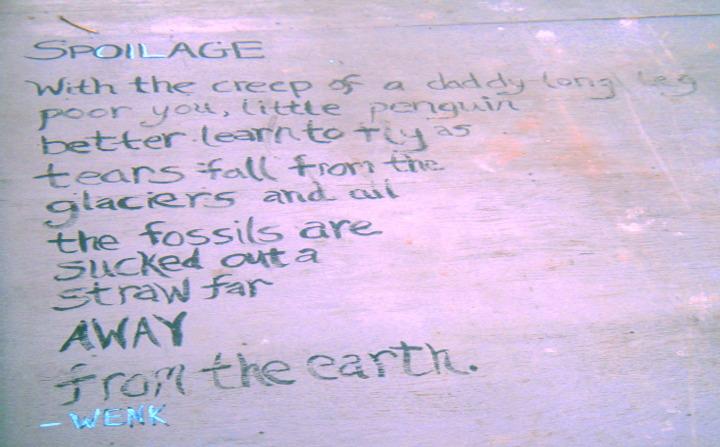 SPOILAGE
With the creep of a daddy long leg
poor you, little penguin
better learn to fly as
tears fall from the
glaciers and all
the fossils are
sucked out a
straw far
AWAY
from the earth.
- WENK